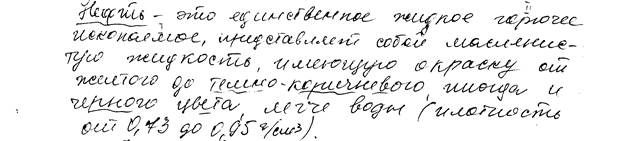 Нефть – это единственное жидкое горючее
ископаемое, представляет собой маслянис-
тую жидкость, имеющую окраску от
желтого до темно-коричневого, иногда и
черного цвета, легче воды (плотность
от 0,73 до 0,95 г/см3).